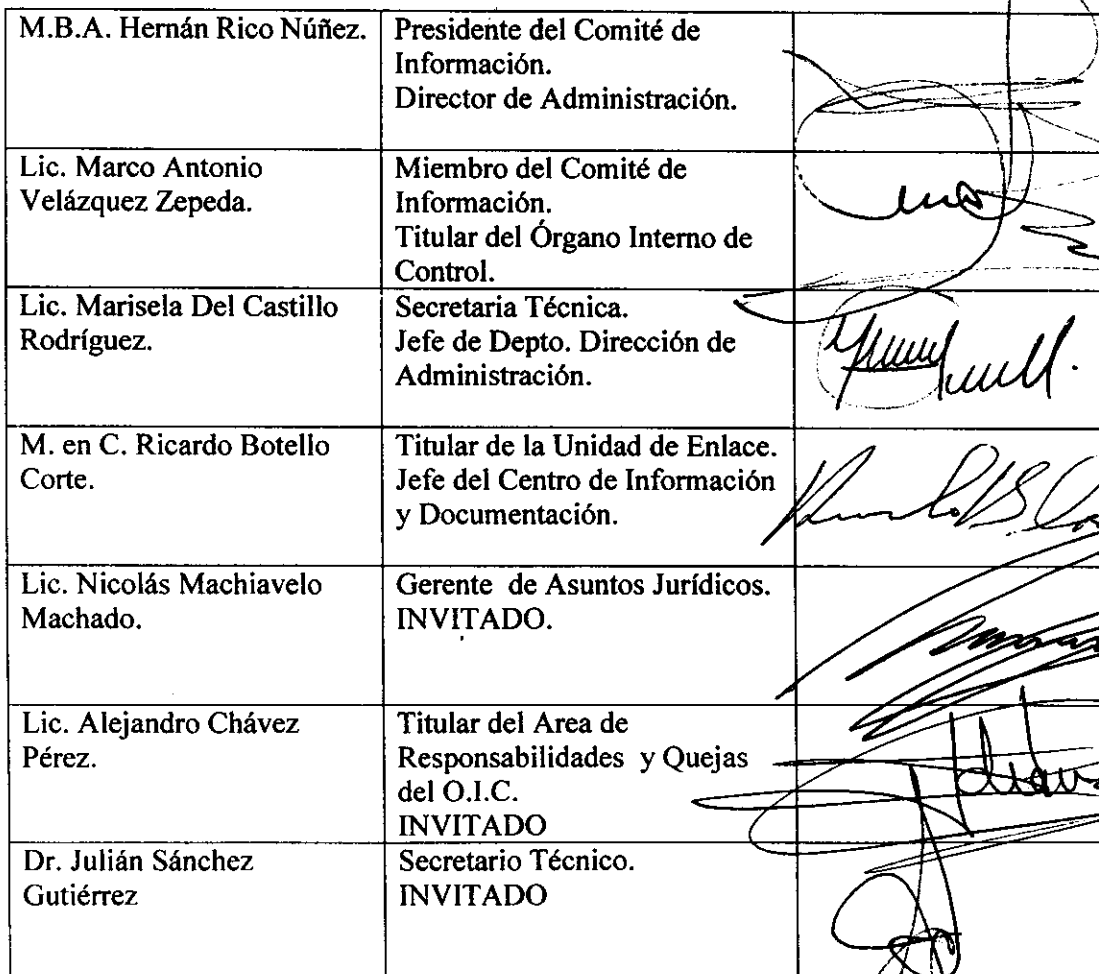 M.B.A. Hernán Rico Núñez.
Presidente del Comité de
Información.
Director de Administración.
Lic. Marco Antonio
Velázquez Zepeda.
Miembro del Comité de
Información.
Titular del Órgano Interno de
Control.
Lic. Marisela Del Castillo
Rodríguez.
Secretaria Técnica.
Jefe de Depto. Dirección de
Administración.
M. en C. Ricardo Botello
Corte.
Titular de la Unidad de Enlace.
Jefe del Centro de Información
y Documentación.
Lic. Nicolás Machiavelo
Machado.
Gerente  de Asuntos Jurídicos.
INVITADO.
Lic. Alejandro Chávez
Pérez.
Titular del Area de
Responsabilidades  y Quejas
del O.I.C.
INVITADO
Dr. Julián Sánchez
Gutiérrez
Secretario Técnico.
INVITADO